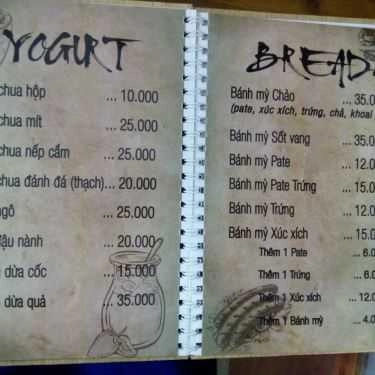 YOGURT
chua hộp ... 10.000
chua mít ... 25.000
chua nếp cẩm ... 25.000
chua đánh đá (thạch)... 20.000
ngô ... 25.000
đậu nành ... 20.000
dừa cốc ... 15.000
dừa quả ... 35.000
BREAD
Bánh mỳ Chảo ... 35.0
(pate, xúc xích, trứng, chả, khoai
Bánh mỳ Sốt vang ... 35.0
Bánh mỳ Pate ... 12.0
Bánh mỳ Pate Trứng ... 15.0
Bánh mỳ Trứng ... 12.0
Bánh mỳ Xúc xích ... 15.0
Thêm 1 Pate ... 6.0
Thêm 1 Trứng ... 6.0
Thêm 1 Xúc xích ... 12.0
Thêm 1 Bánh mỳ ... 4.0